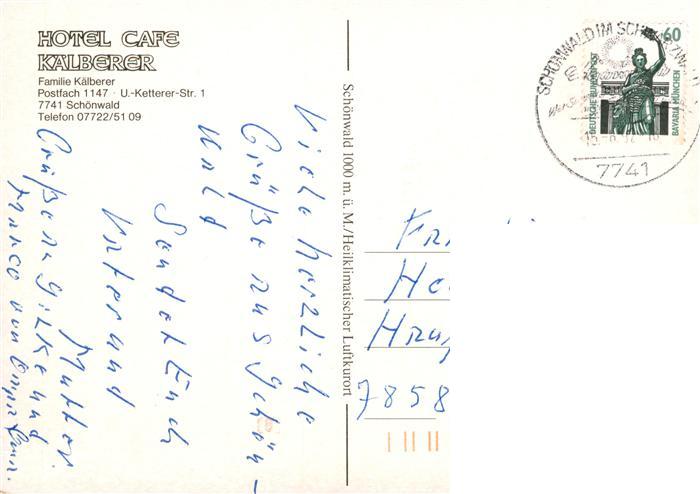 HOTEL CAFE
KÄLBERER
Familie Kälberer
Postfach 1147 · U.-Ketterer-Str. 1
7741 Schönwald
Telefon 07722/51 09
Viele herzliche
Grüße aus Schön-
wald
Sendet Euch
Vater und
Mutter.
Grüße an und
Marco von
Schönwald 1000 m. ü. M./Heilklimatischer Luftkurort
SCHÖNWALD IM
7741
60
DEUTSCHE BUNDESPOST
BAVARIA MÜNCHEN
7858